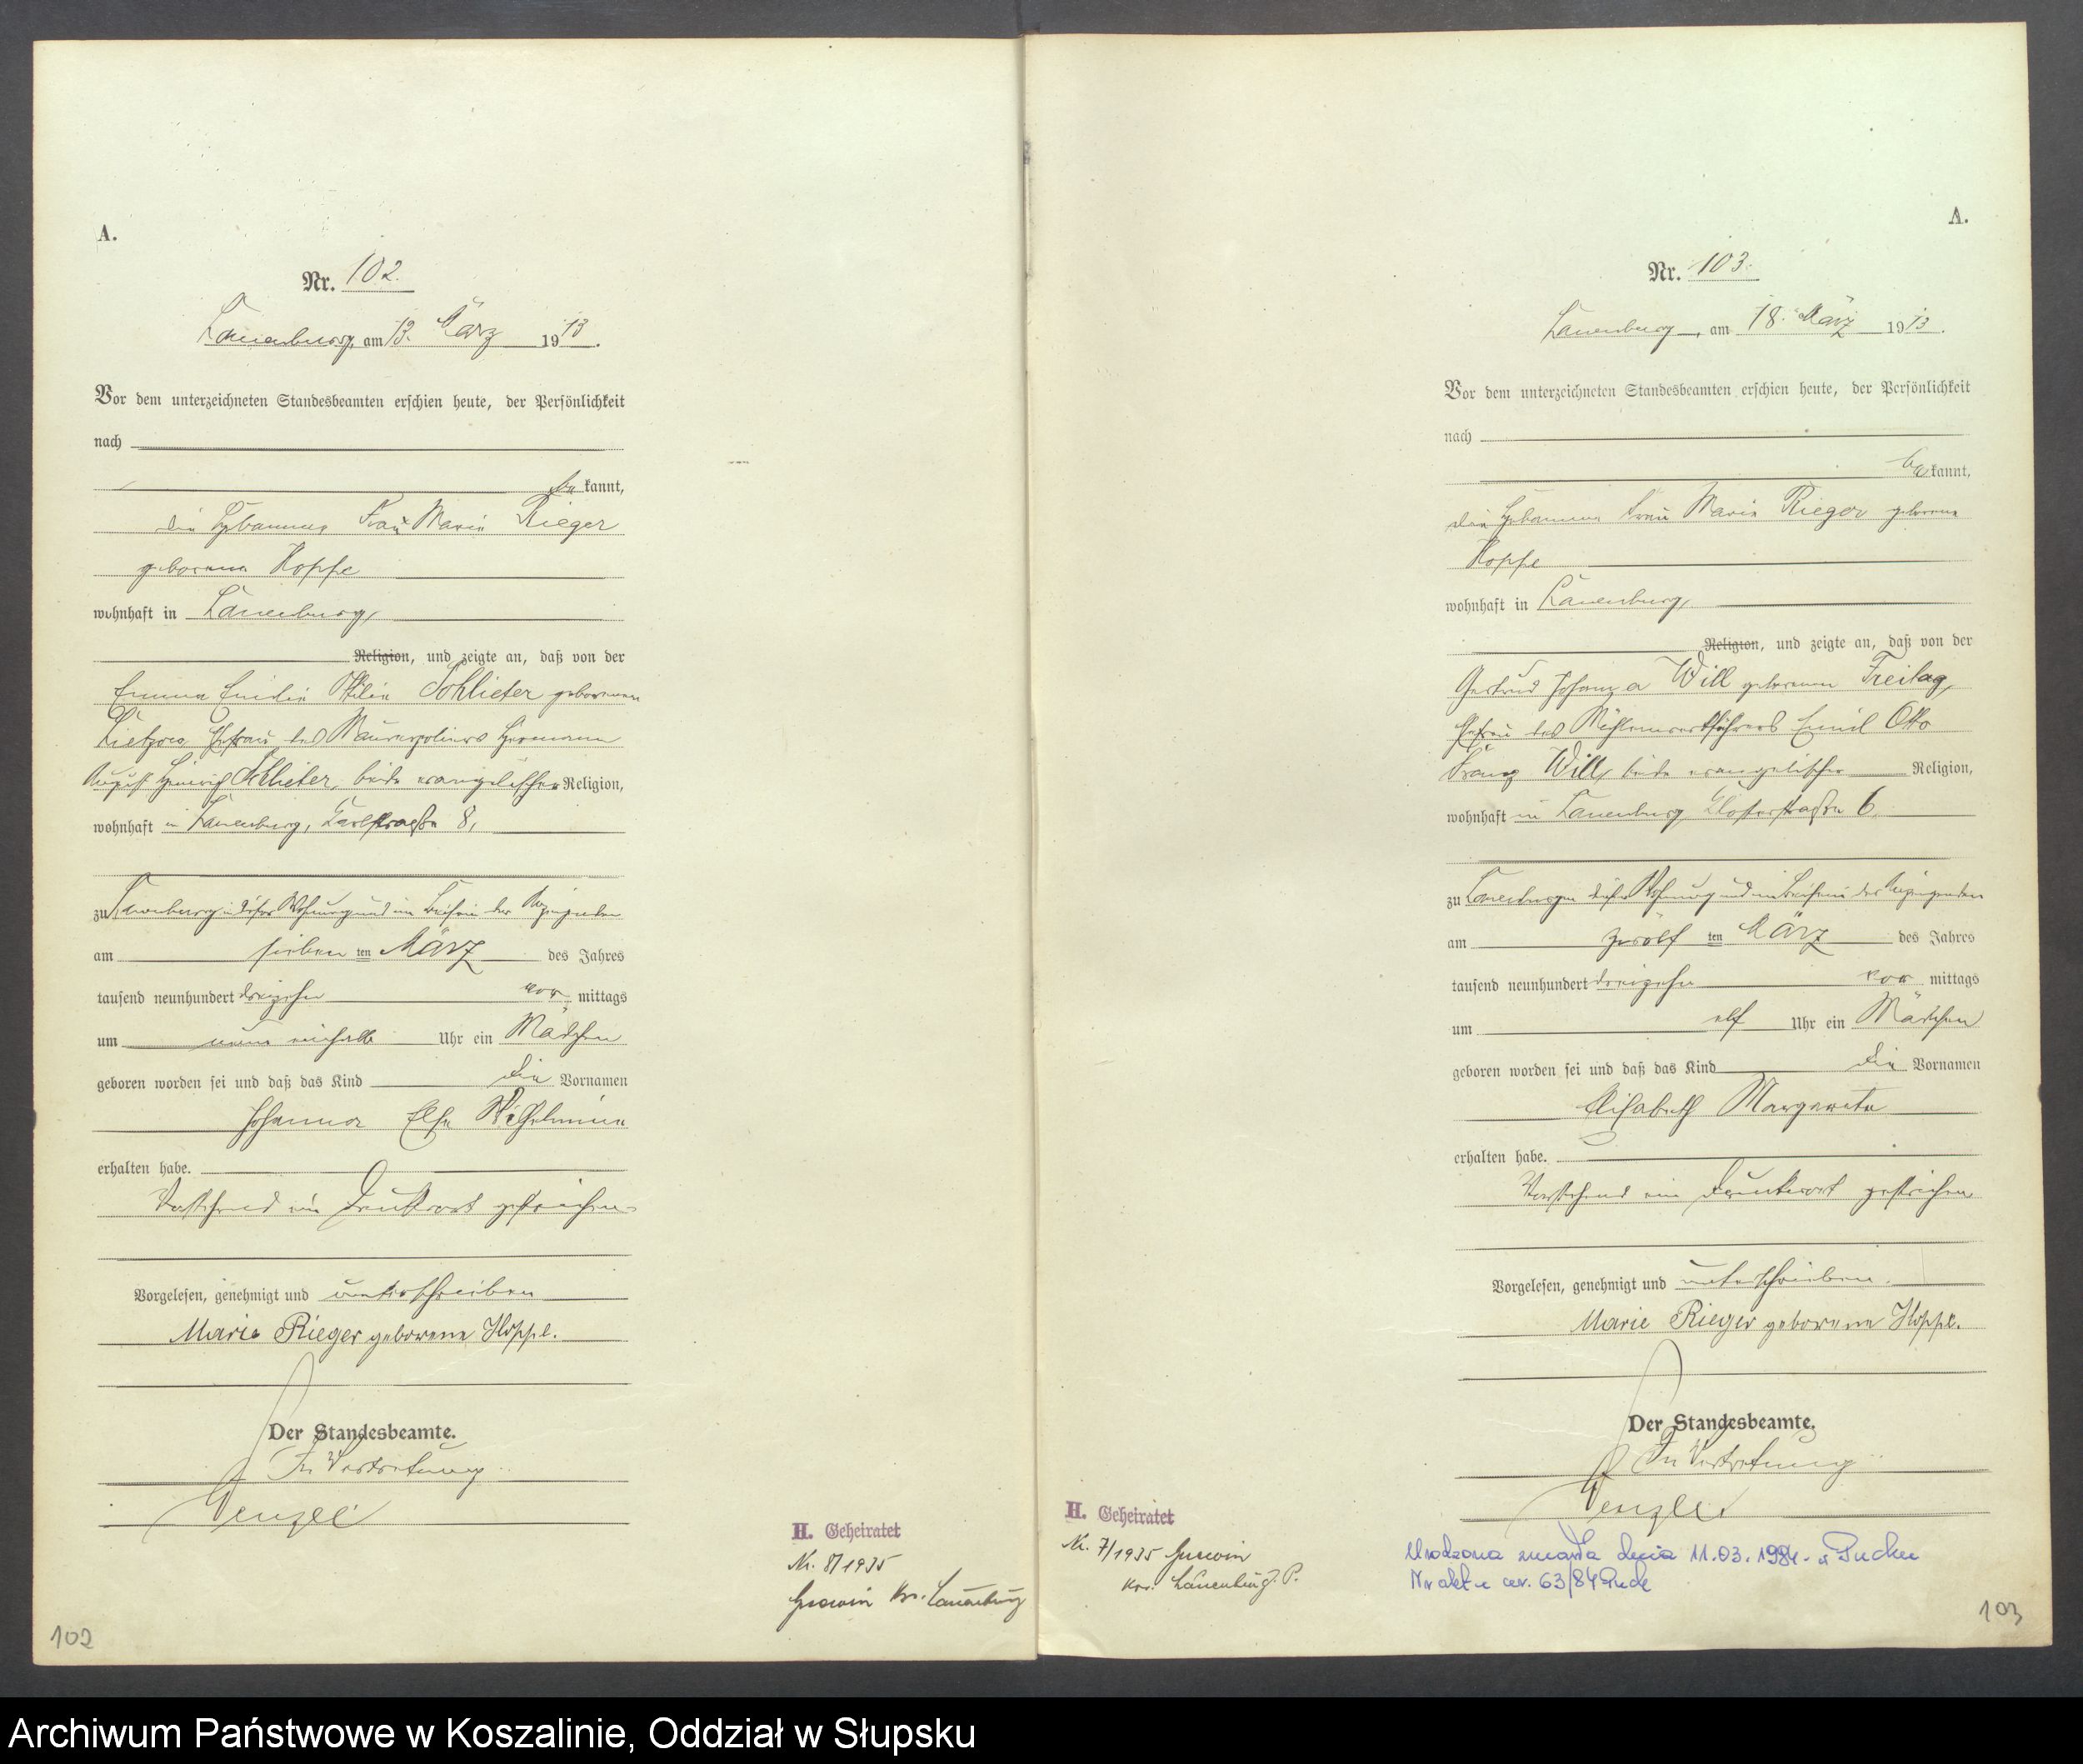 A.
Nr. 102.
Lauenburg, am 13. März 1913.
Vor dem unterzeichneten Standesbeamten erschien heute, der Persönlichkeit
nach
be kannt,
die Hebamme Frau Marie Rieger
geborene Hoppe
wohnhaft in Lauenburg,
Religion, und zeigte an, daß von der
Emma Emilie Ottilie Schlieter geborenen
Lietzow, Ehefrau des Maurerpoliers Hermann
August Heinrich Schlieter, beide evangelischer Religion,
wohnhaft in Lauenburg, 8,
zu Lauenburg in dieser Wohnung und im Beisein der Anzeigenden
am sieben ten März des Jahres
tausend neunhundert dreizehn vor mittags
um neun einhalb Uhr ein Mädchen
geboren worden sei und daß das Kind die Vornamen
Johanna Else Wilhelmine
erhalten habe.
Vorstehend ein Druckwort gestrichen.
Vorgelesen, genehmigt und unterschrieben
Marie Rieger geborene Hoppe.
Der Standesbeamte.
In Vertretung
H. Geheiratet
Nr. 8/1935
Kr. Lauenburg
102
A.
Nr. 103.
Lauenburg, am 18. März 1913.
Vor dem unterzeichneten Standesbeamten erschien heute, der Persönlichkeit
nach
be kannt,
die Hebamme Frau Marie Rieger geborene
Hoppe
wohnhaft in Lauenburg,
Religion, und zeigte an, daß von der
Gertrud Johanna Will geborenen Freitag,
Ehefrau des Mühlenwerkführers Emil Otto
Franz Will, beide evangelischer Religion,
wohnhaft in Lauenburg Klosterstraße 6.
zu Lauenburg in dieser Wohnung und im Beisein der Anzeigenden
am zwölf ten März des Jahres
tausend neunhundert dreizehn vor mittags
um elf Uhr ein Mädchen
geboren worden sei und daß das Kind die Vornamen
Elisabeth Margarete
erhalten habe.
Vorstehend ein Druckwort gestrichen
Vorgelesen, genehmigt und unterschrieben.
Marie Rieger geborene Hoppe.
Der Standesbeamte.
In Vertretung
H. Geheiratet
Nr. 7/1935
Kr. Lauenburg i. P.
Urodzona zmarła dnia 11.03.1984. w Pucku
Nr aktu 63/84 Puck
103
Archiwum Państwowe w Koszalinie, Oddział w Słupsku